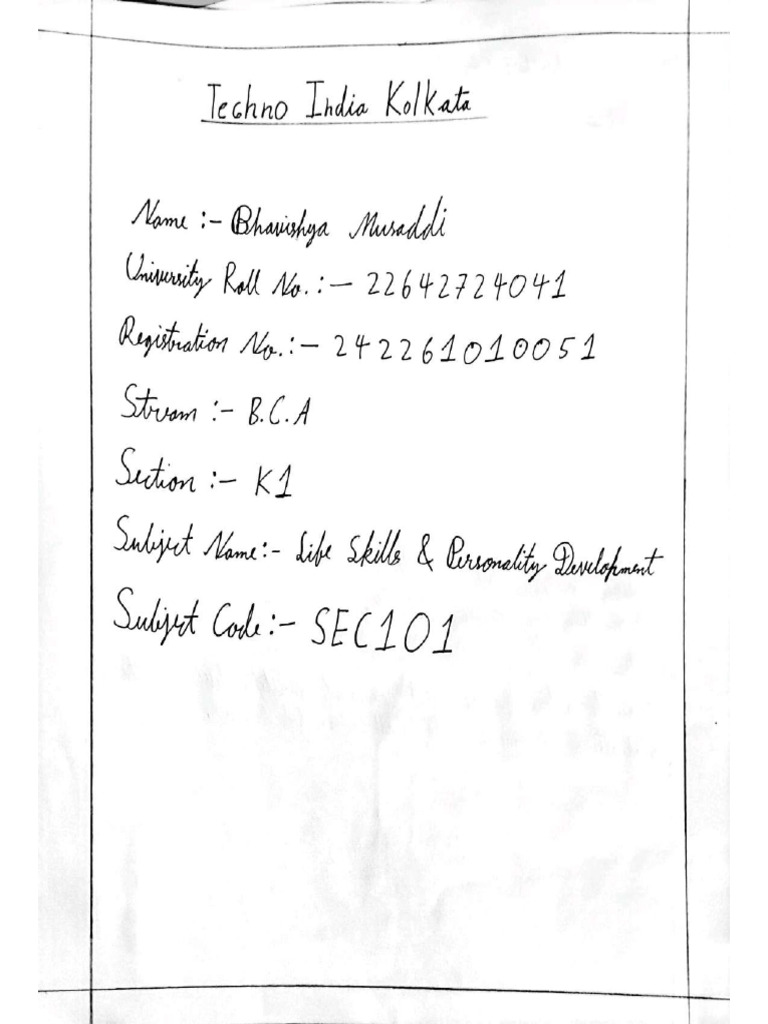 Techno India Kolkata
Name :- Bhavishya Musaddi
University Roll No. :- 22642724041
Registration No. :- 242261010051
Stream :- B.C.A
Section :- K1
Subject Name :- Life Skills & Personality Development
Subject Code :- SEC101